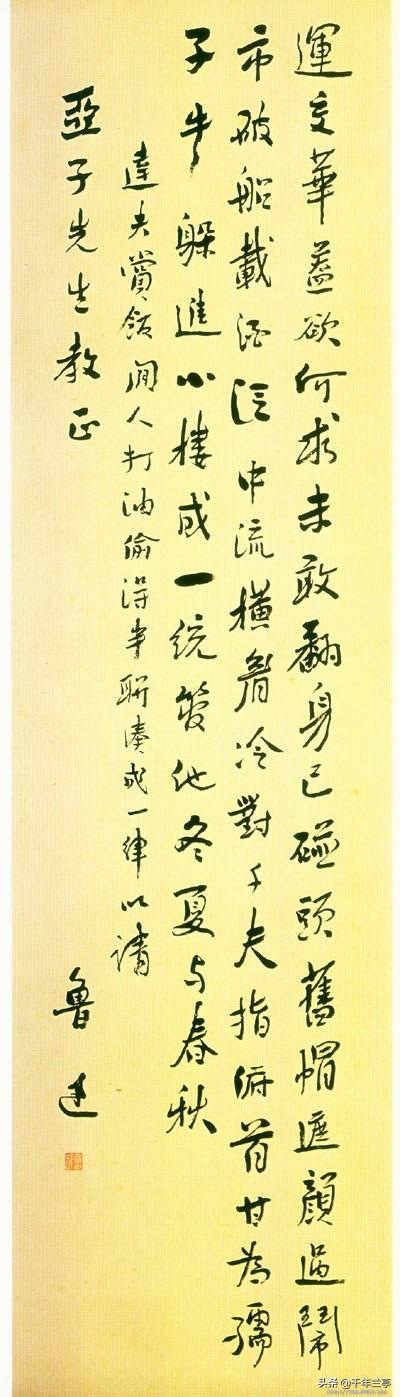 運交華蓋欲何求未敢翻身已碰頭舊帽遮顏過鬧
市破船載酒泛中流橫眉冷對千夫指俯首甘為孺
子牛躲進小樓成一統管他冬夏与春秋
達夫賞飯閒人打油偷得半聯湊成一律以請
亞子先生教正
魯迅
头条 @千年兰亭